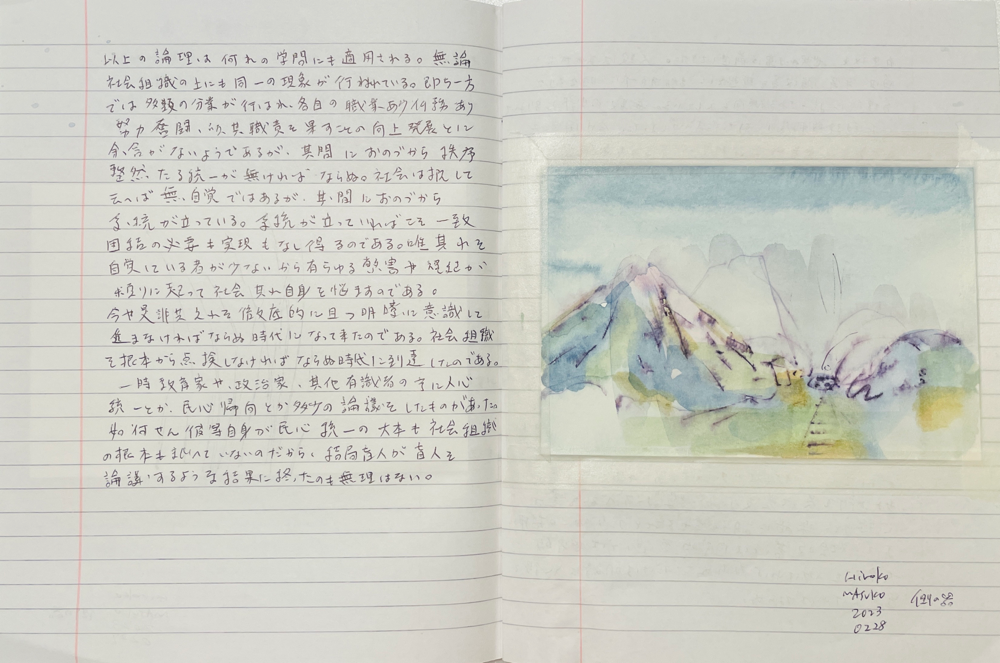 以上の論理は何れの学問にも適用される。無論
社会組織の上にも同一の現象が行われている。即ち一方
では多類の分業が行はれ、各自の職業あり任務あり
努力奮闘、以其職責を果すことの向上発展とに
余念がないようであるが、其間におのづから秩序
整然たる統一が無ければならぬ。社会は概して
云へば無自覚ではあるが、其間におのづから
系統が立っている。系統が立っていればこそ一致
団結の必要も実現もなし得るのである。唯其れを
自覚している者が少ないから有らゆる弊害や
頻りに起って社会其れ自身を悩ますのである。
今や是非共之れを徹底的に且つ明瞭に意識して
進まなければならぬ時代になって来たのである。社会組織
を根本から点検しなければならぬ時代に到達したのである。
一時教育家や、政治家、其他有識者の間に人心
統一とか、民心帰向とか多少の論議をしたものがあったが
如何せん彼等自身が民心統一の大本も社会組織
の根本も知っていないのだから、結局盲人が盲人を
論議するような結果に終ったのも無理はない。
Hiroko
MASUKO
2023
0228